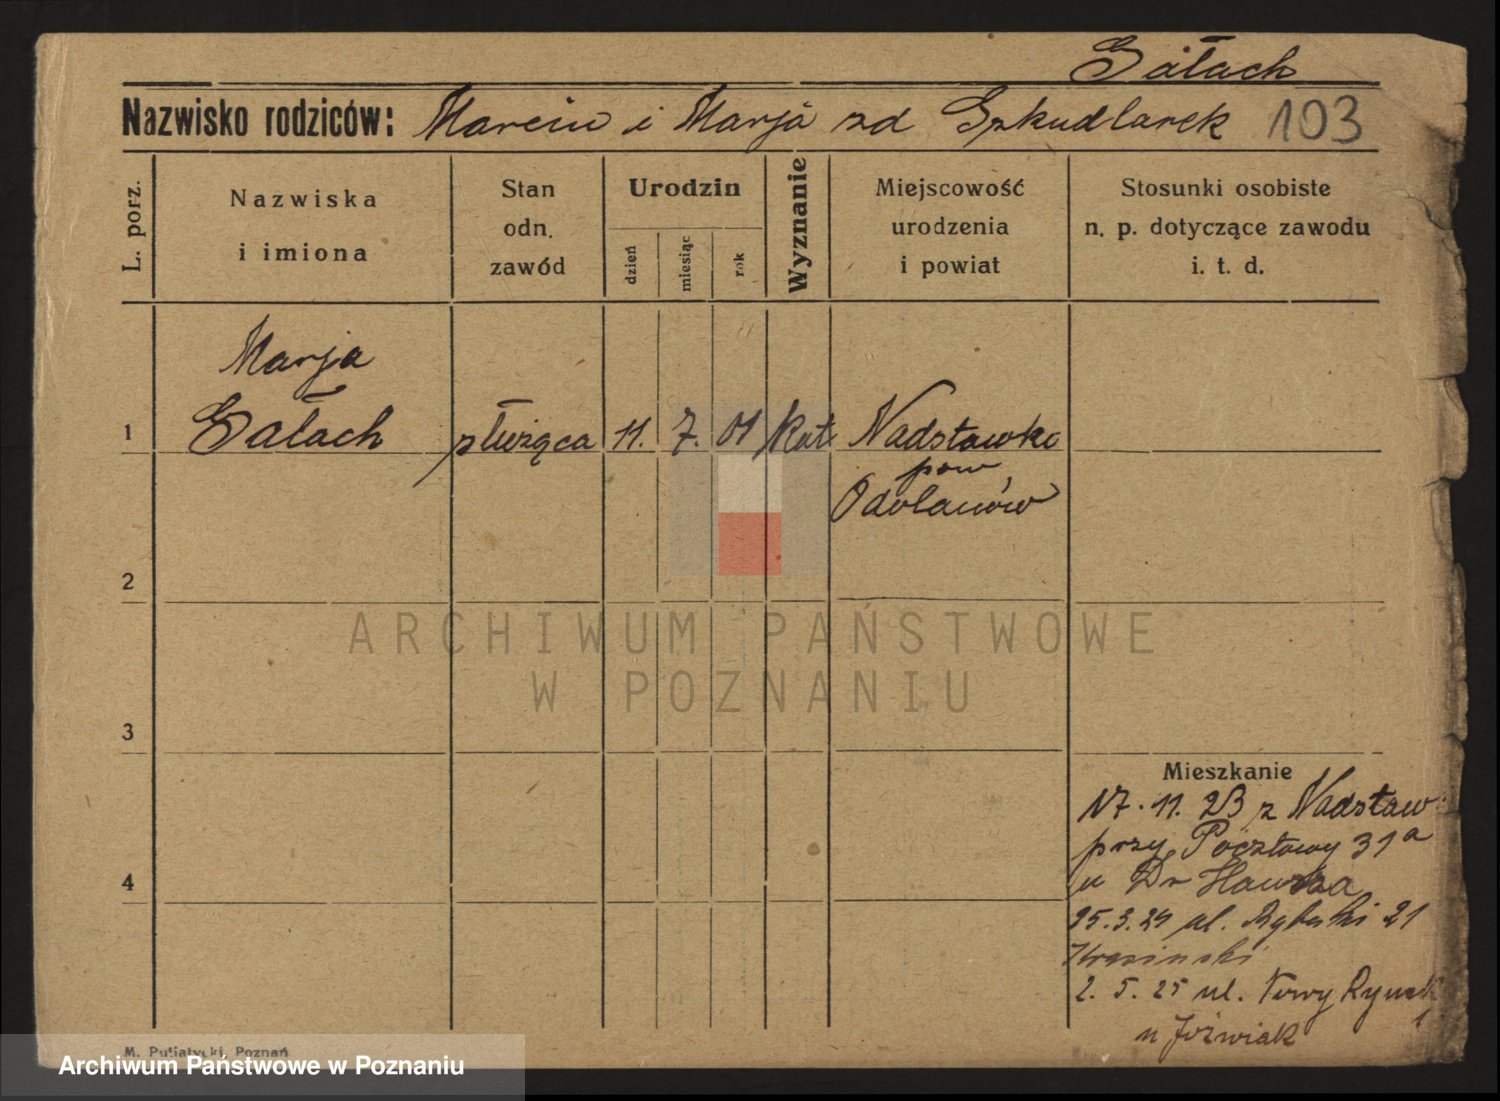 Gałach
Nazwisko rodziców: Marcin i Marja zd Szkudlarek 103
L. porz.
Nazwiska
i imiona
Stan
odn.
zawód
Urodzin
dzień
miesiąc
rok
Wyznanie
Miejscowość
urodzenia
i powiat
Stosunki osobiste
n. p. dotyczące zawodu
i. t. d.
Marja
1 Gałach służąca 11. 7. 01 kat Nadstawki
pow
Odolanów
2
ARCHIWUM PAŃSTWOWE
W POZNANIU
3
4
Mieszkanie
17. 11. 23 z Nadstaw
przy Pocztowy 31a
u Dr
25.3.24 ul. Rybaki 21
Krasinski
2. 5. 25 ul. Nowy Rynek
1
u Jóźwiak
M. Putiatycki, Poznań
Archiwum Państwowe w Poznaniu